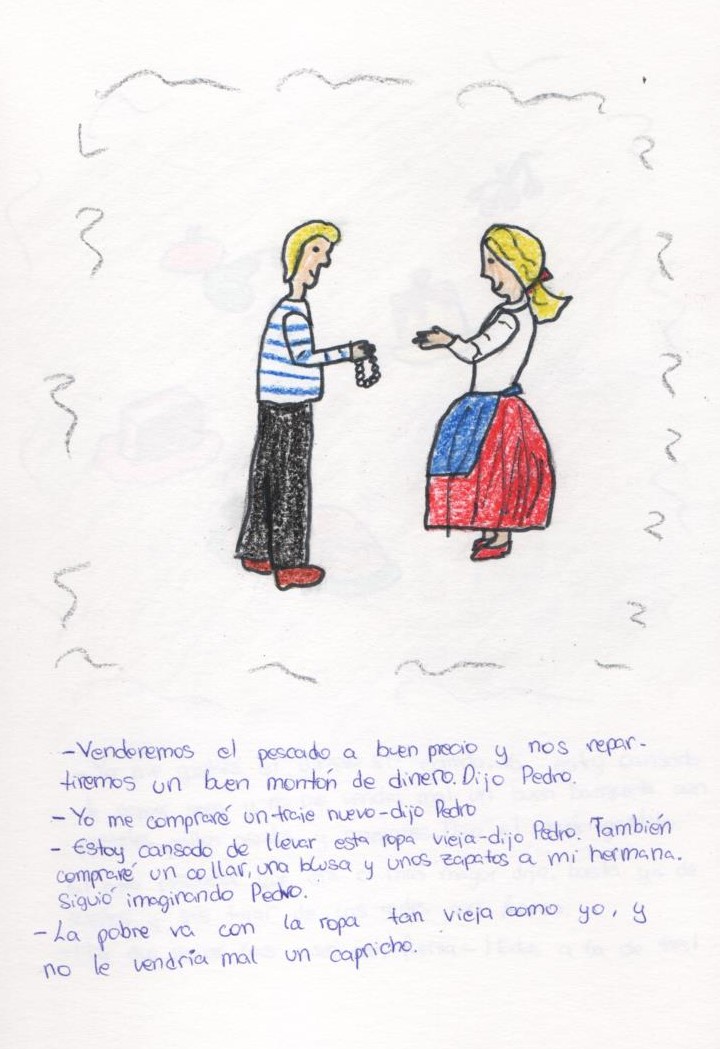 -Venderemos el pescado a buen precio y nos repar-
tiremos un buen montón de dinero. Dijo Pedro.
-Yo me compraré un traje nuevo-dijo Pedro
-Estoy cansado de llevar esta ropa vieja-dijo Pedro. También
compraré un collar, una blusa y unos zapatos a mi hermana.
Siguió imaginando Pedro.
-La pobre va con la ropa tan vieja como yo, y
no le vendría mal un capricho.